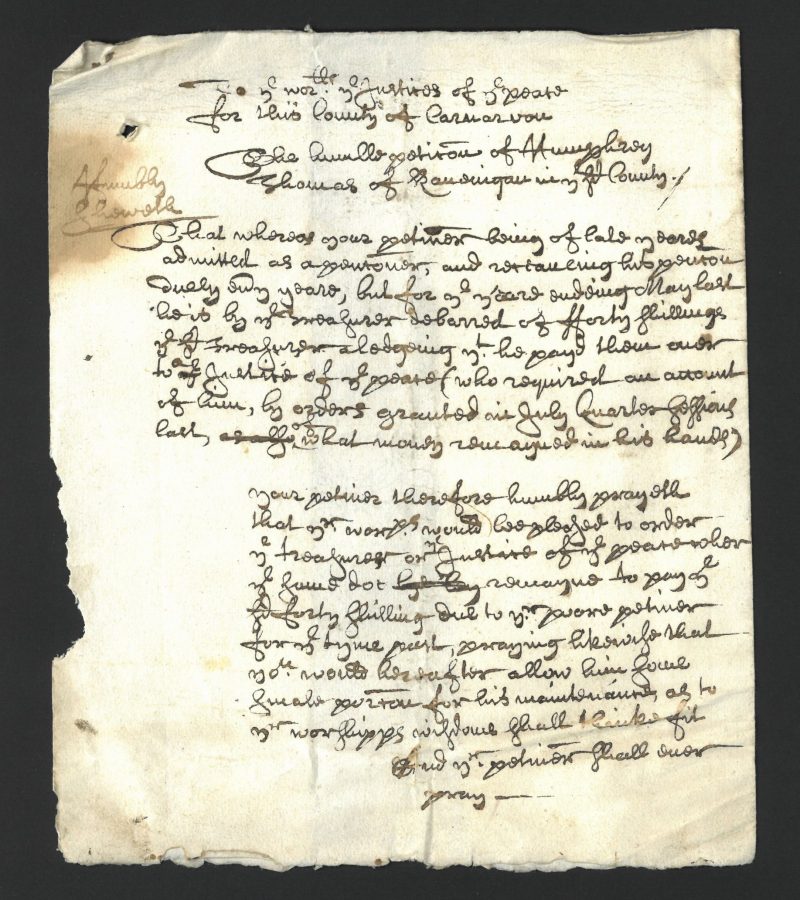 To ye worll ye Justices of ye peace
for this County of Carnarvon
The humble peticon of Humphrey
Thomas of in ye sd County
Humbly
Sheweth
That whereas your peticner being of late yeares
admitted as a pencōner, and receauing his pencōn
duely eūy yeare, but for ye yeare endeing May last
he is by ye Treasurer debarred of fforty shillings
ye sd Treasurer aledgeing yt he payd them ouer
to ye Justice of ye peace (who required an accont
of him, by orders granted in July Quarter Sessions
last, what money remayned in his hands)
your peticner therefore humbly prayeth
that yr worps would bee pleased to order
ye treasurer or ye Justice of ye peace wher
ye same doe remayne to pay ye
sd forty shilling due to yr poore peticner
for ye tyme past, praying likewise that
you would hereafter allow him some
smale porcōn for his maintenance, as to
yr worshipps wisdoms shall thinke fit
And yr peticner shall euer
pray